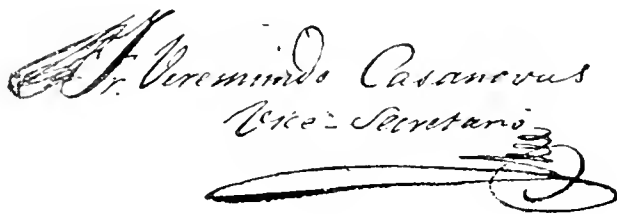 Fr. Veremundo Casanovas
Vice-Secretario